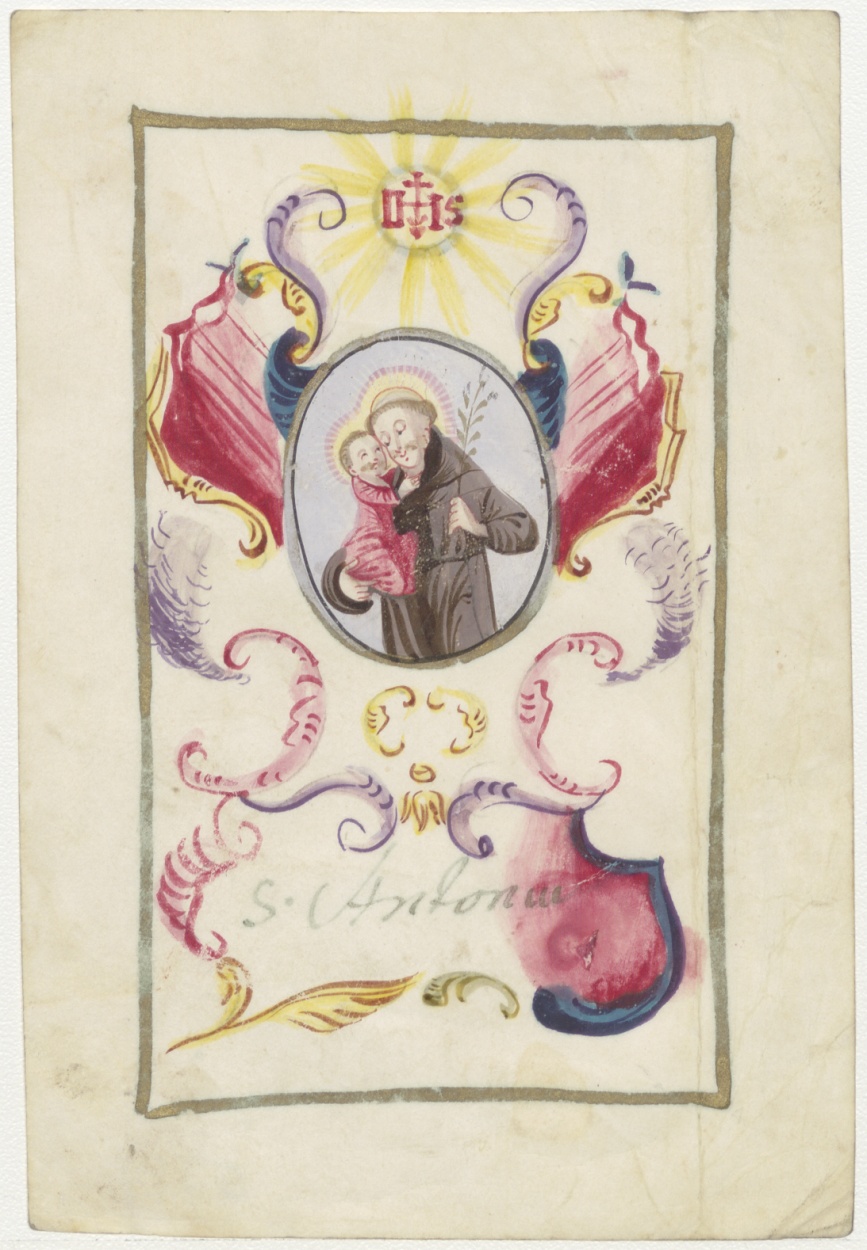 IHS
S. Antonius